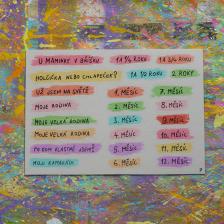 U MAMINKY V BŘÍŠKU 1 1/4 ROKU 1 3/4 ROKU
HOLČIČKA NEBO CHLAPEČEK? 1 1/2 ROKU 2 ROKY
UŽ JSEM NA SVĚTĚ 1. MĚSÍC 7. MĚSÍC
MOJE RODINA 2. MĚSÍC 8. MĚSÍC
MOJE VELKÁ RODINA 3. MĚSÍC 9. MĚSÍC
MOJE VELKÁ RODINA 4. MĚSÍC 10. MĚSÍC
PO KOM VLASTNĚ JSEM? 5. MĚSÍC 11. MĚSÍC
MOJI KAMARÁDI 6. MĚSÍC 12. MĚSÍC